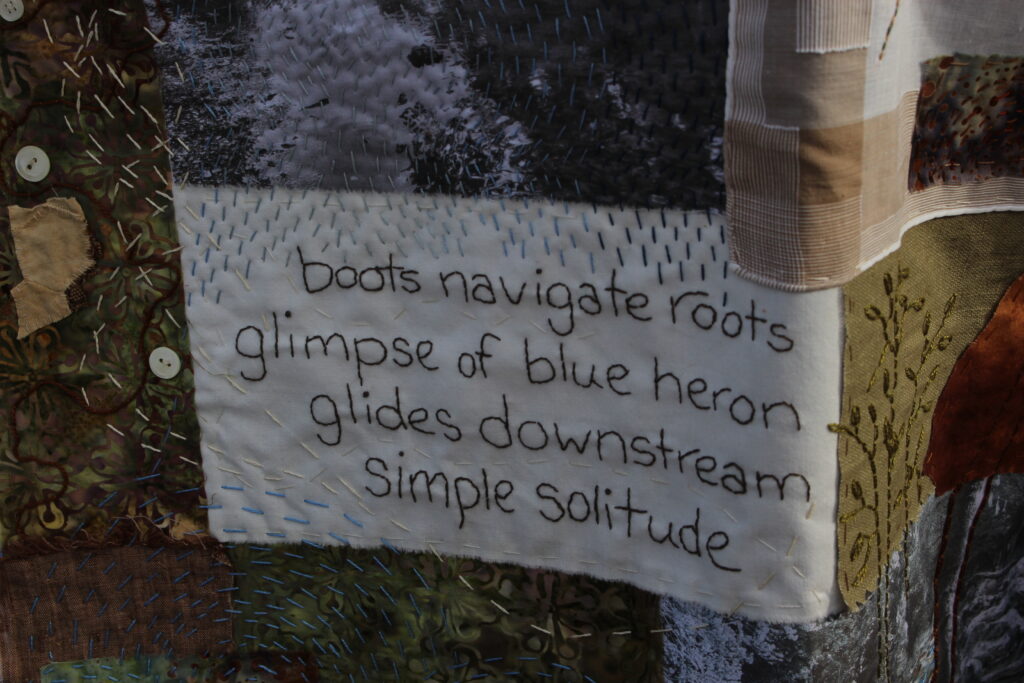 boots navigate roots
glimpse of blue heron
glides downstream
simple solitude